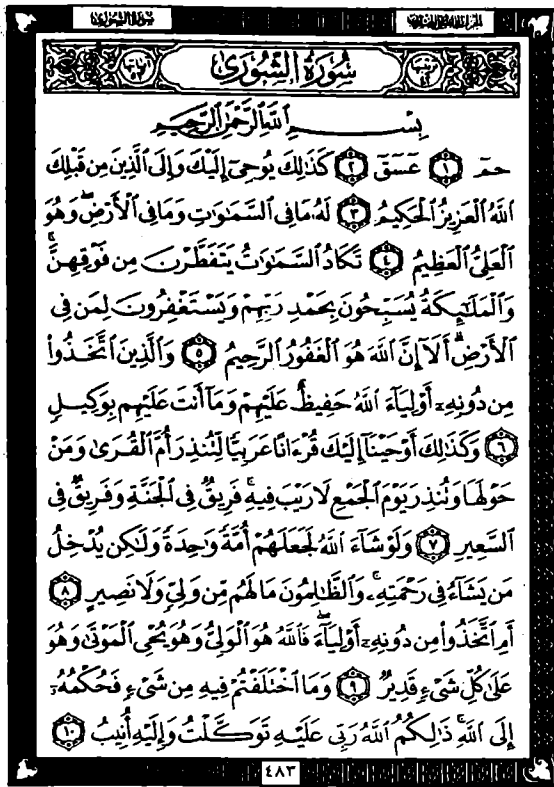 سُورَةُ الشُّورَىٰ
بِسْمِ ٱللَّهِ ٱلرَّحْمَٰنِ ٱلرَّحِيمِ
حمٓ ١ عٓسٓقٓ ٢ كَذَٰلِكَ يُوحِىٓ إِلَيْكَ وَإِلَى ٱلَّذِينَ مِن قَبْلِكَ
ٱللَّهُ ٱلْعَزِيزُ ٱلْحَكِيمُ ٣ لَهُۥ مَا فِى ٱلسَّمَٰوَٰتِ وَمَا فِى ٱلْأَرْضِ ۖ وَهُوَ
ٱلْعَلِىُّ ٱلْعَظِيمُ ٤ تَكَادُ ٱلسَّمَٰوَٰتُ يَتَفَطَّرْنَ مِن فَوْقِهِنَّ ۚ
وَٱلْمَلَٰٓئِكَةُ يُسَبِّحُونَ بِحَمْدِ رَبِّهِمْ وَيَسْتَغْفِرُونَ لِمَن فِى
ٱلْأَرْضِ ۗ أَلَآ إِنَّ ٱللَّهَ هُوَ ٱلْغَفُورُ ٱلرَّحِيمُ ٥ وَٱلَّذِينَ ٱتَّخَذُوا۟
مِن دُونِهِۦٓ أَوْلِيَآءَ ٱللَّهُ حَفِيظٌ عَلَيْهِمْ وَمَآ أَنتَ عَلَيْهِم بِوَكِيلٍ
٦ وَكَذَٰلِكَ أَوْحَيْنَآ إِلَيْكَ قُرْءَانًا عَرَبِيًّا لِّتُنذِرَ أُمَّ ٱلْقُرَىٰ وَمَنْ
حَوْلَهَا وَتُنذِرَ يَوْمَ ٱلْجَمْعِ لَا رَيْبَ فِيهِ ۚ فَرِيقٌ فِى ٱلْجَنَّةِ وَفَرِيقٌ فِى
ٱلسَّعِيرِ ٧ وَلَوْ شَآءَ ٱللَّهُ لَجَعَلَهُمْ أُمَّةً وَٰحِدَةً وَلَٰكِن يُدْخِلُ
مَن يَشَآءُ فِى رَحْمَتِهِۦ ۚ وَٱلظَّٰلِمُونَ مَا لَهُم مِّن وَلِىٍّ وَلَا نَصِيرٍ ٨
أَمِ ٱتَّخَذُوا۟ مِن دُونِهِۦٓ أَوْلِيَآءَ ۖ فَٱللَّهُ هُوَ ٱلْوَلِىُّ وَهُوَ يُحْىِ ٱلْمَوْتَىٰ وَهُوَ
عَلَىٰ كُلِّ شَىْءٍ قَدِيرٌ ٩ وَمَا ٱخْتَلَفْتُمْ فِيهِ مِن شَىْءٍ فَحُكْمُهُۥٓ
إِلَى ٱللَّهِ ۚ ذَٰلِكُمُ ٱللَّهُ رَبِّى عَلَيْهِ تَوَكَّلْتُ وَإِلَيْهِ أُنِيبُ ١٠
٤٨٣